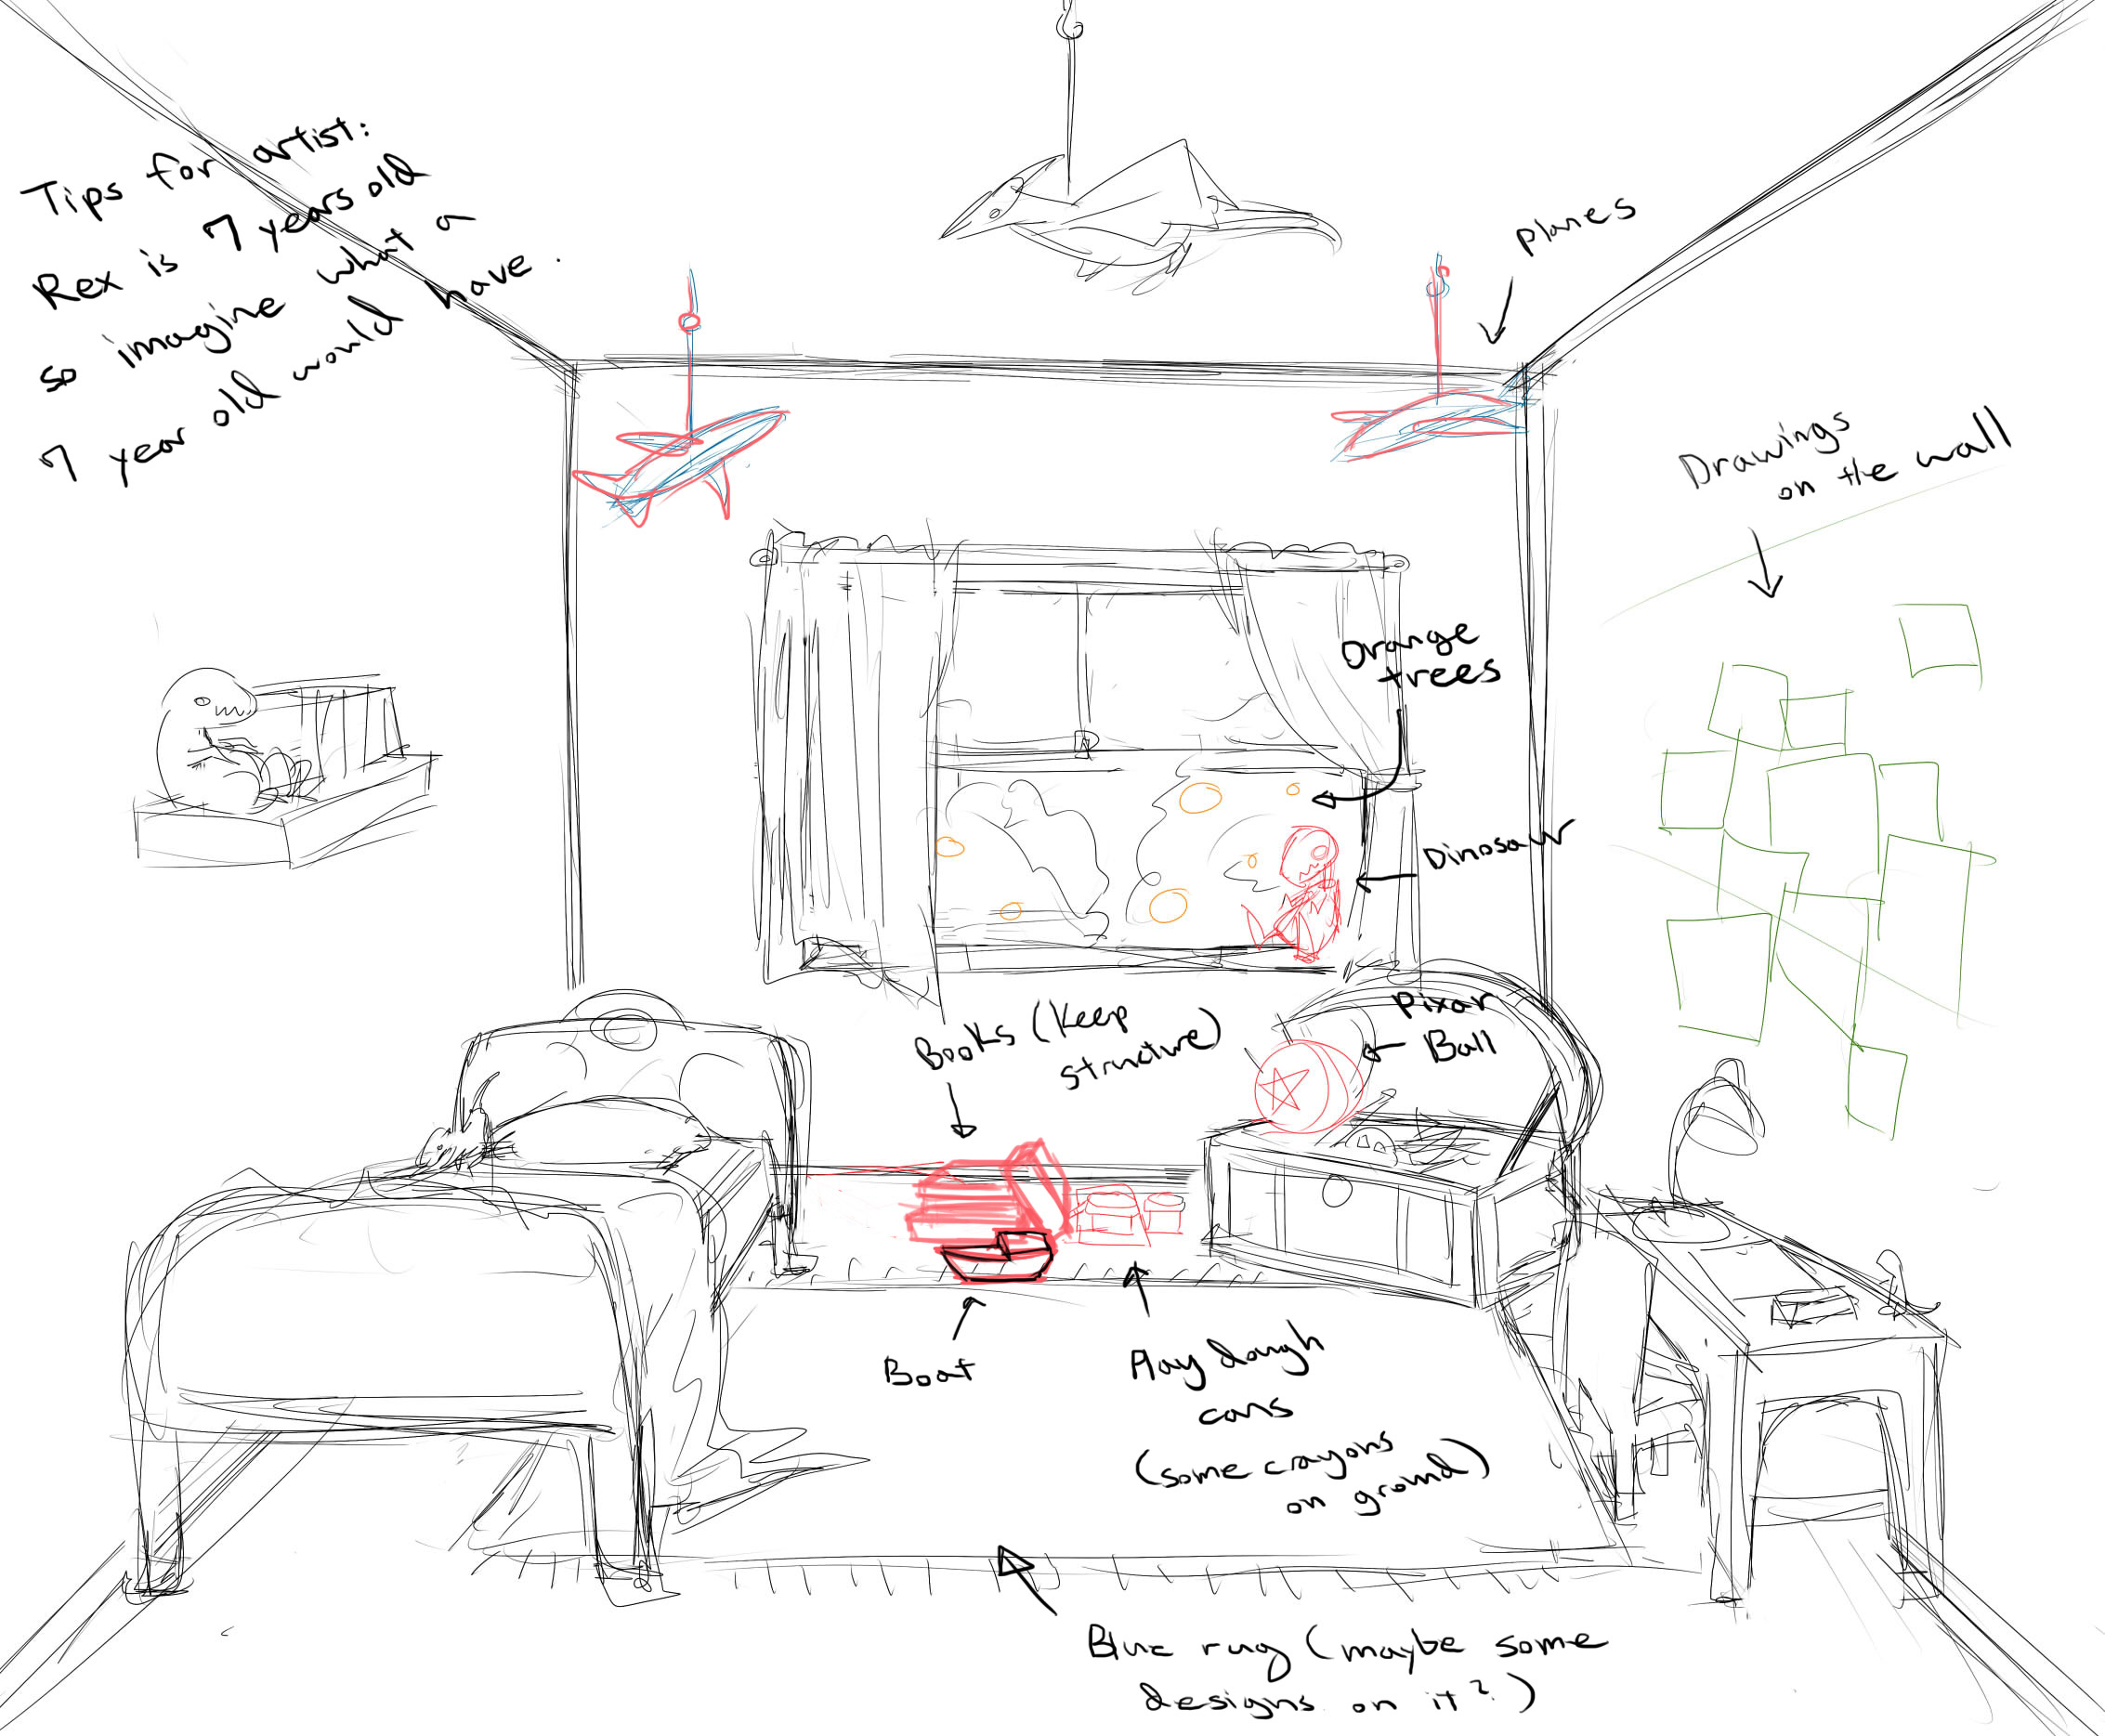 Tips for artist:
Rex is 7 years old
so imagine what a
7 year old would have.
Planes
Drawings
on the wall
Orange
trees
Dinosaur
Books (Keep
structure)
Pixar
Ball
Boat
Play dough
cans
(some crayons
on ground)
Blue rug (maybe some
designs on it?)